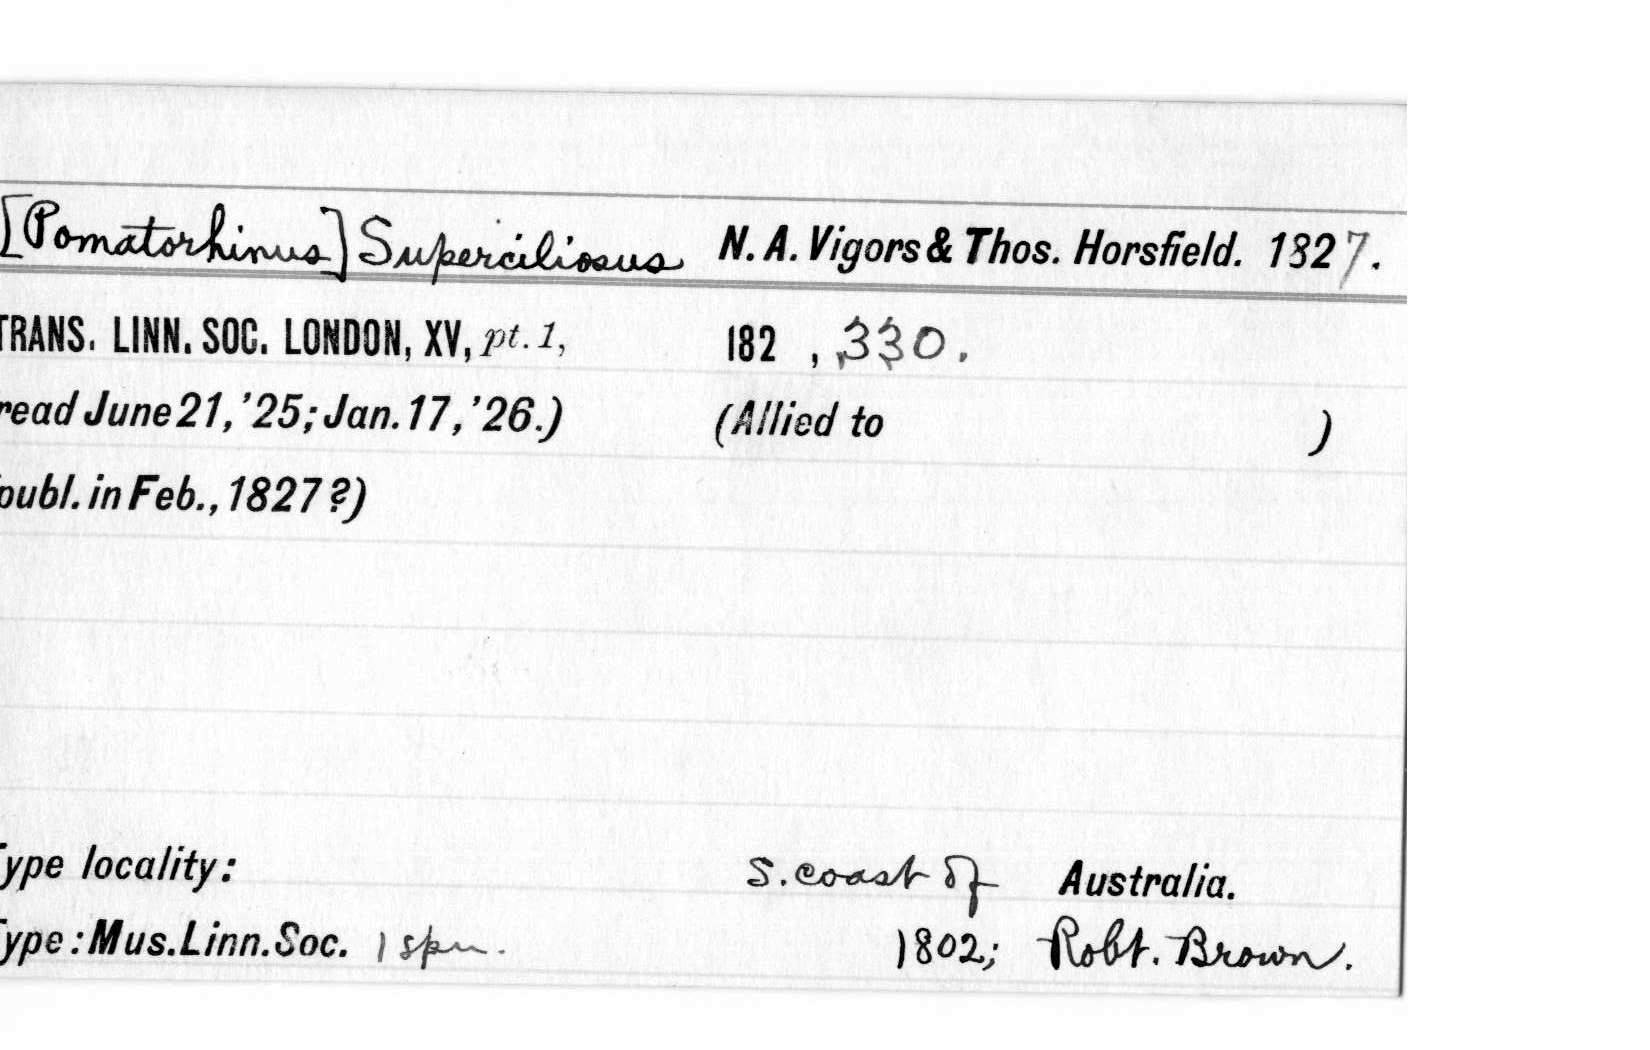 [Pomatorhinus] Superciliosus N. A. Vigors & Thos. Horsfield. 1827.
TRANS. LINN. SOC. LONDON, XV, pt. 1, 182 , 330.
read June 21, '25; Jan. 17, '26.) (Allied to )
publ. in Feb., 1827?)
Type locality: S. coast of Australia.
Type: Mus. Linn. Soc. 1 spm. 1802; Robt. Brown.